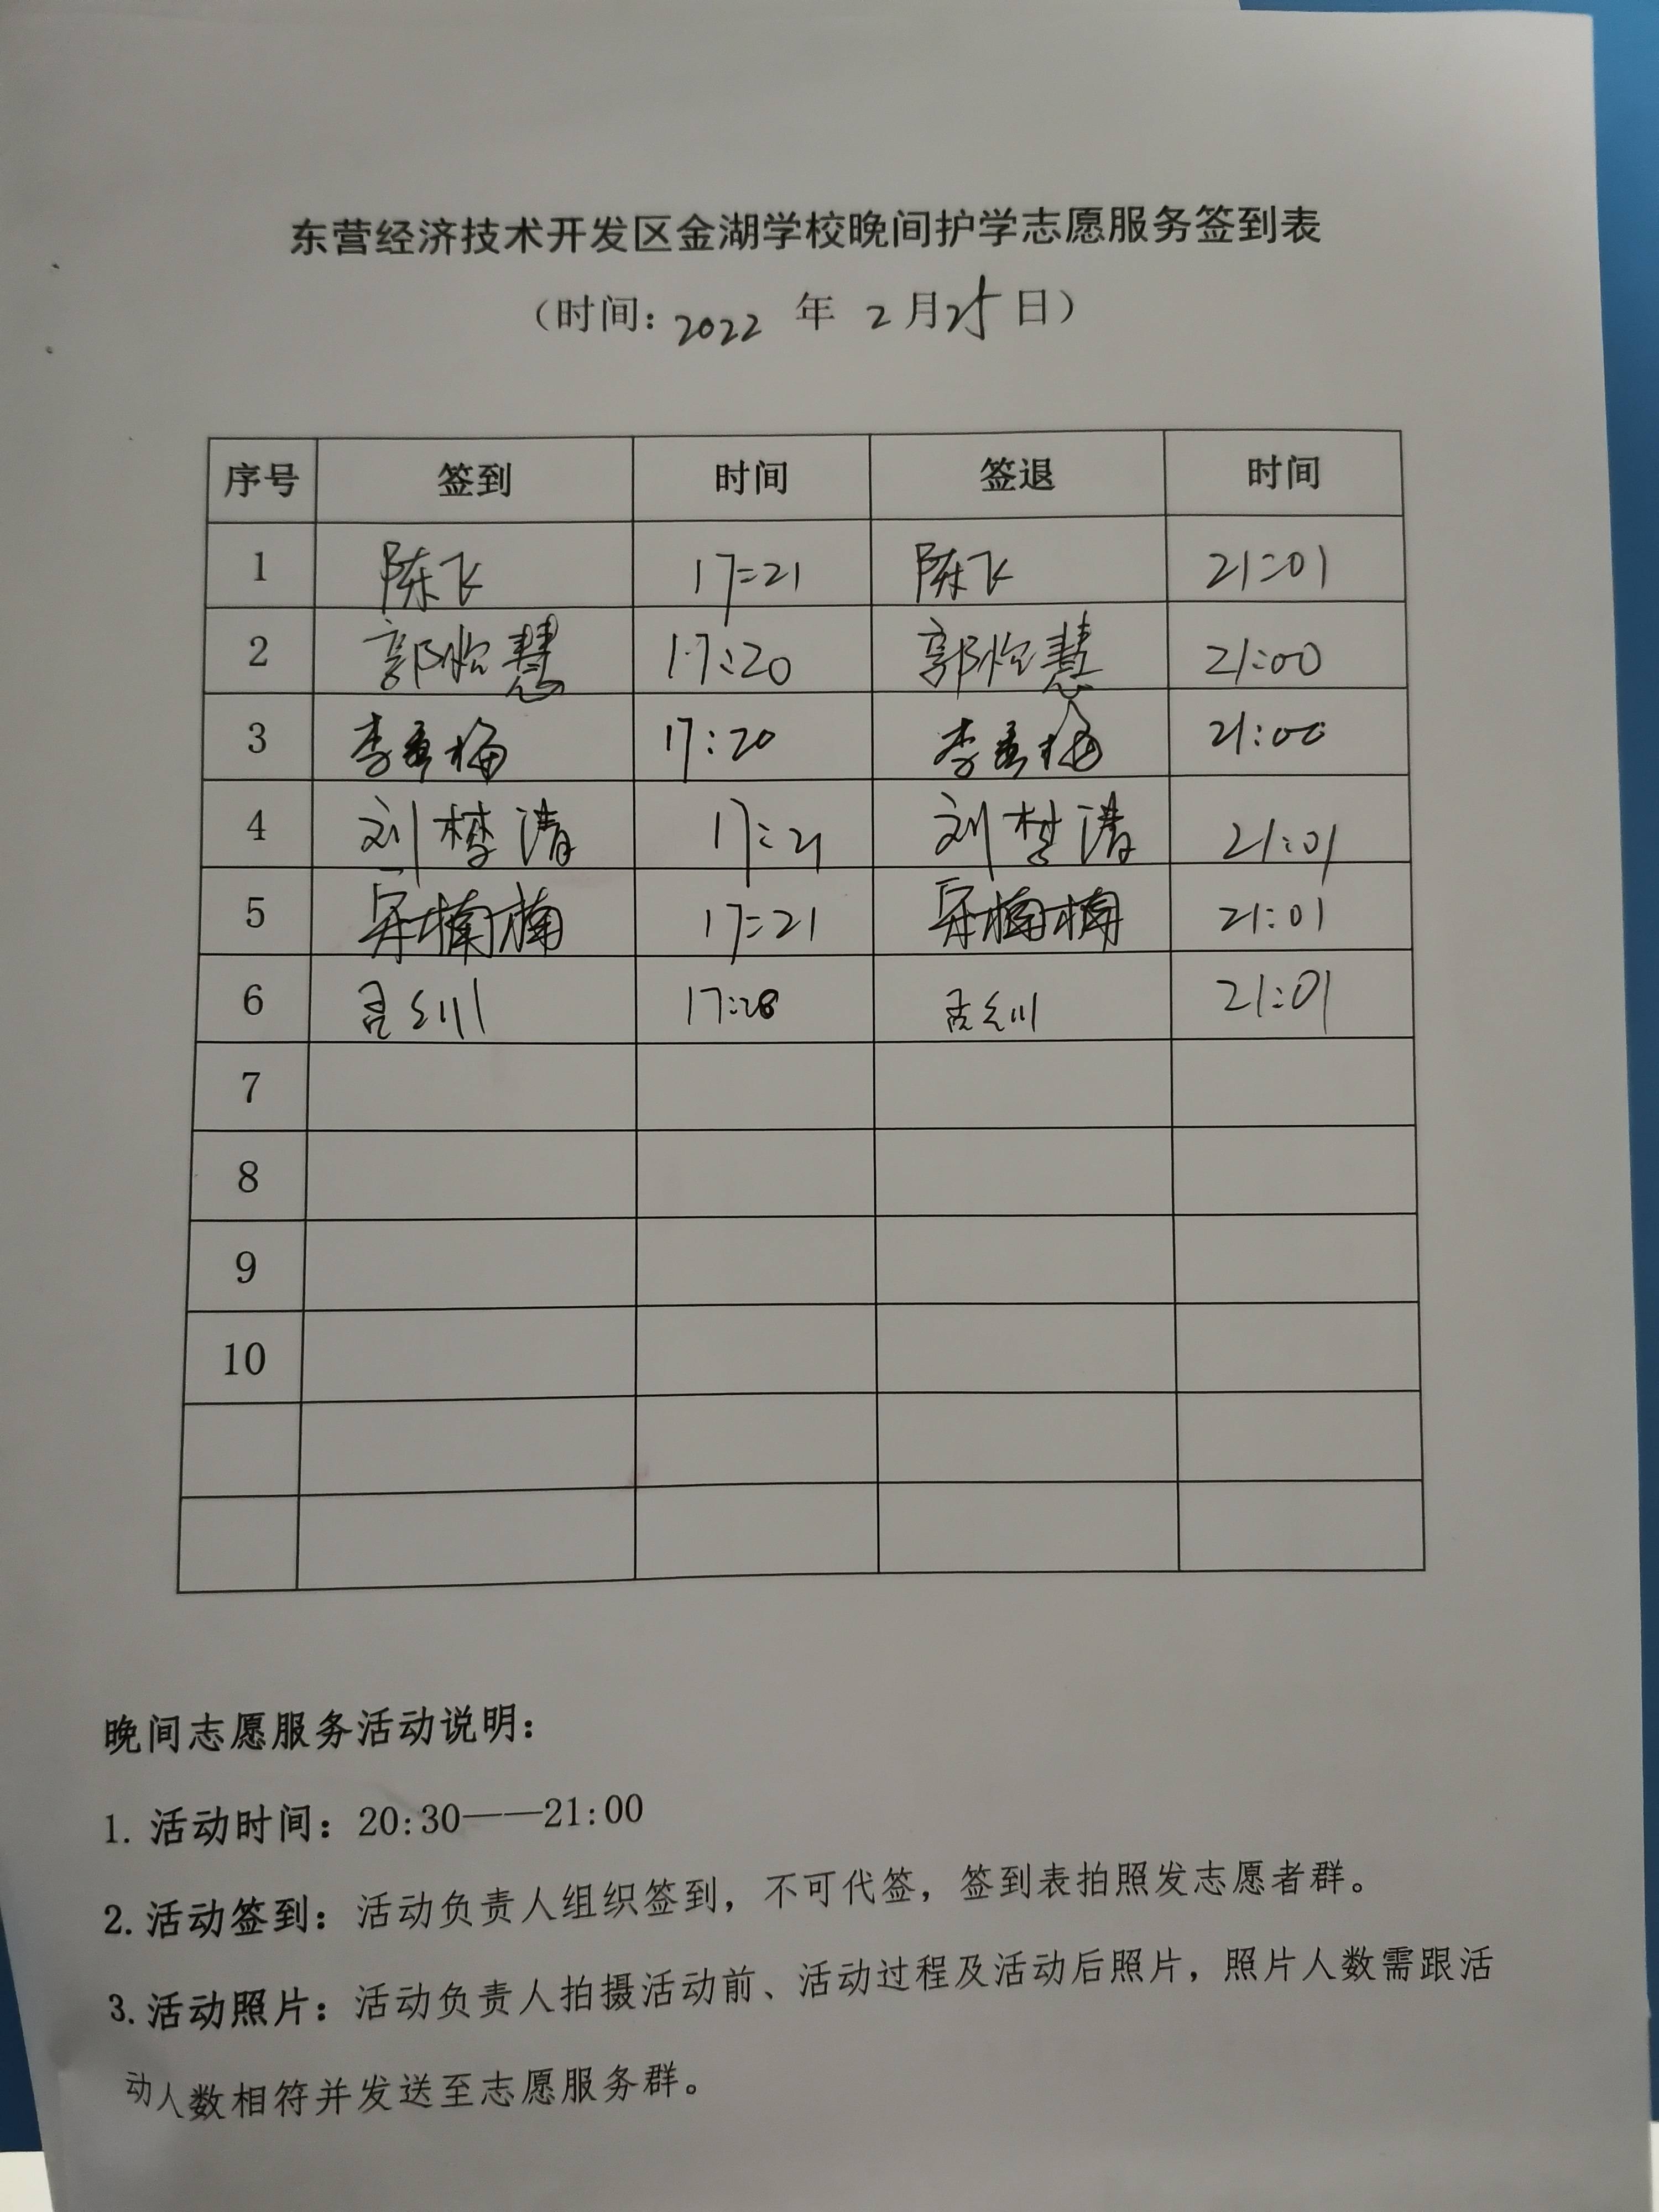 东营经济技术开发区金湖学校晚间护学志愿服务签到表
（时间：2022 年 2 月 25 日）
序号 签到 时间 签退 时间
1 陈飞 17:21 陈飞 21:01
2 郭怡慧 17:20 郭怡慧 21:00
3 李秀梅 17:20 李秀梅 21:00
4 刘梦清 17:21 刘梦清 21:01
5 楠楠 17:21 楠楠 21:01
6 17:28 21:01
7
8
9
10
晚间志愿服务活动说明：
1. 活动时间：20:30——21:00
2. 活动签到：活动负责人组织签到，不可代签，签到表拍照发志愿者群。
3. 活动照片：活动负责人拍摄活动前、活动过程及活动后照片，照片人数需跟活
动人数相符并发送至志愿服务群。